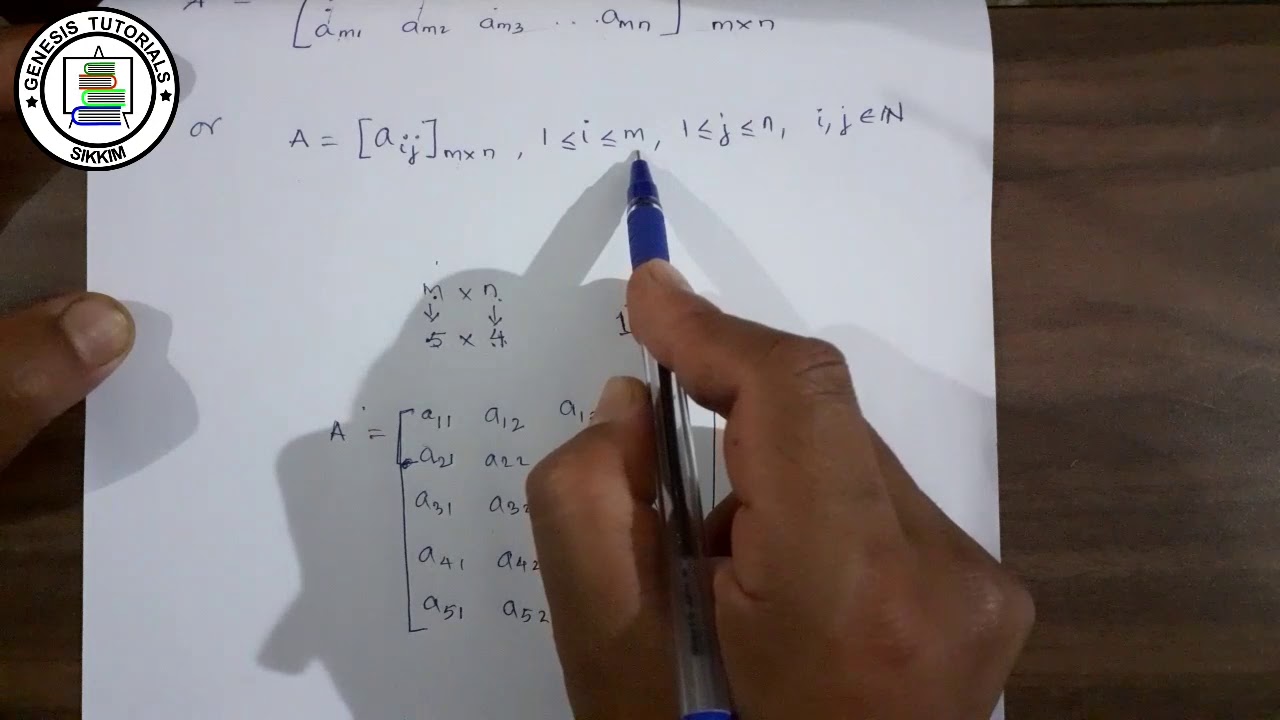 GENESIS TUTORIALS
SIKKIM
A = [am1 am2 am3 ...amn] m×n
or A = [aij]m×n , 1 ≤ i ≤ m, 1 ≤ j ≤ n, i, j ∈ N
m × n
↓ ↓
5 × 4
A = [a11 a12
a21 a22
a31 a32
a41 a42
a51 a52